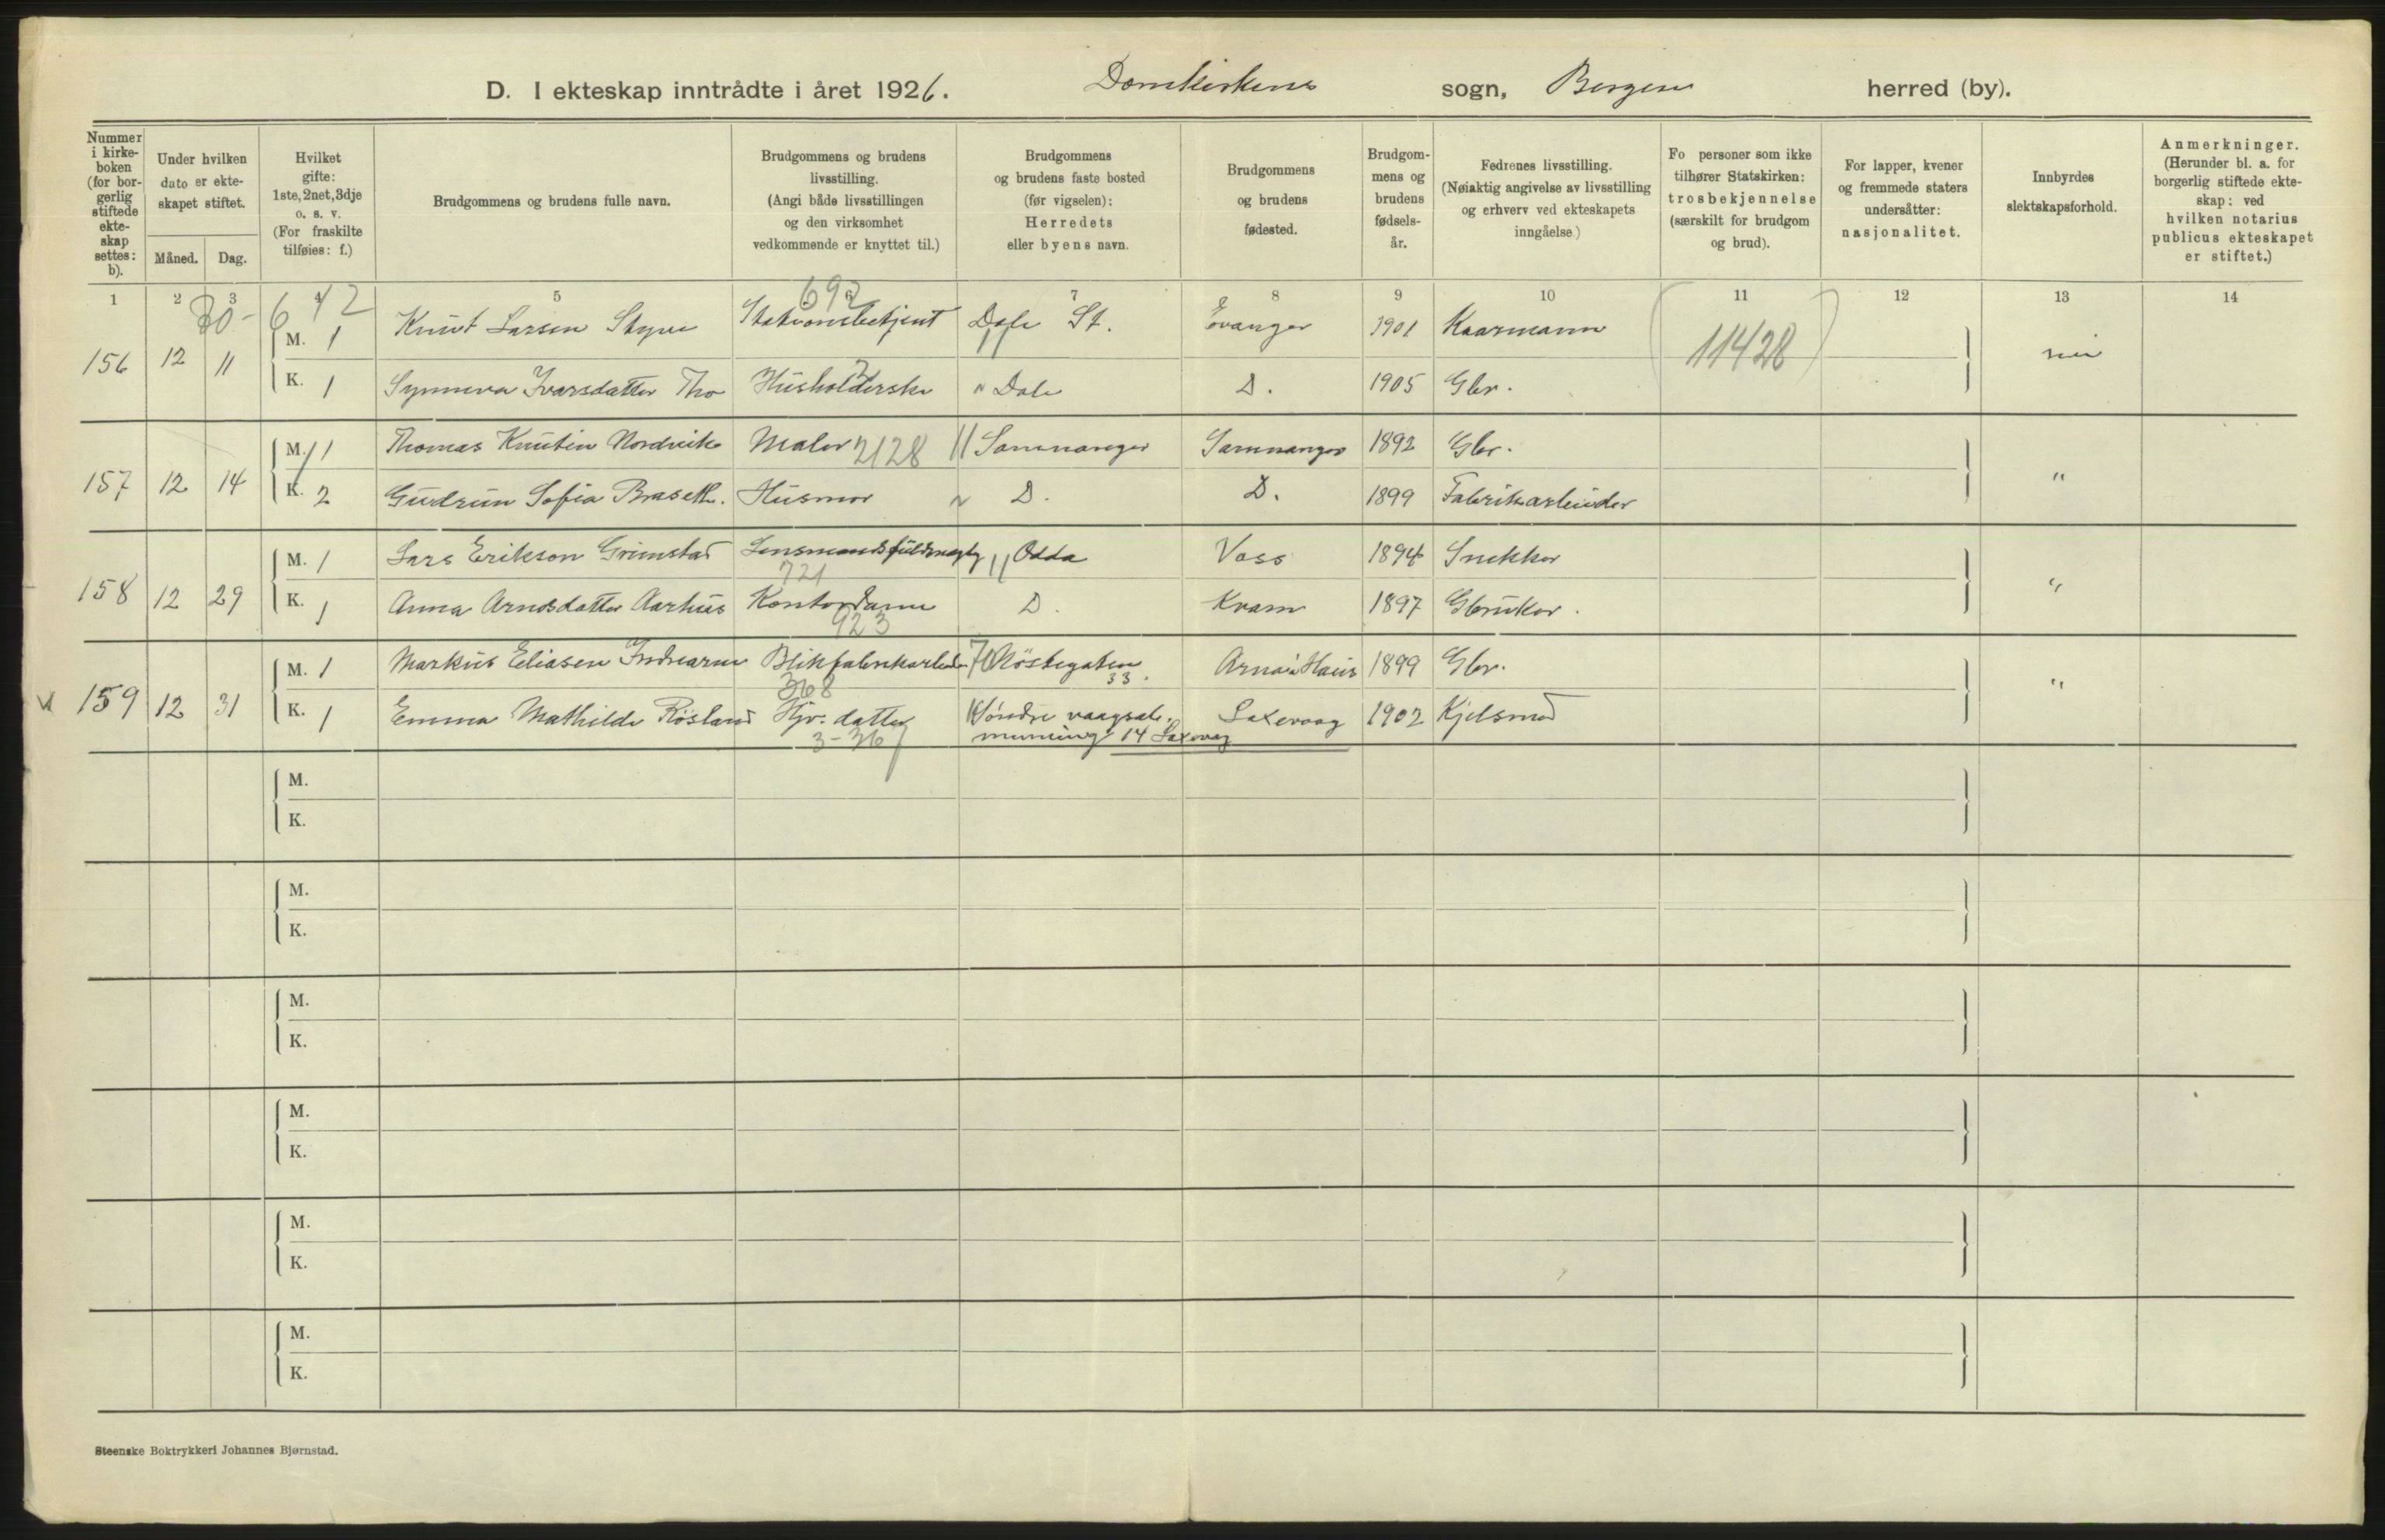 D. I ekteskap inntrådte i året 1926. Domkirkens sogn, Bergen herred (by).
Nummer i kirkeboken (for borgerlig stiftede ekteskap settes: b).
Under hvilken dato er ekteskapet stiftet.
Måned. Dag.
Hvilket gifte: 1ste, 2net, 3dje o. s. v. (For fraskilte tilføies: f.)
Brudgommens og brudens fulle navn.
Brudgommens og brudens livsstilling. (Angi både livsstillingen og den virksomhet vedkommende er knyttet til.)
Brudgommens og brudens faste bosted (før vigselen): Herredets eller byens navn.
Brudgommens og brudens fødested.
Brudgommens og brudens fødselsår.
Fedrenes livsstilling. (Nøiaktig angivelse av livsstilling og erhverv ved ekteskapets inngåelse.)
Fo personer som ikke tilhører Statskirken: trosbekjennelse (særskilt for brudgom og brud).
For lapper, kvener og fremmede staters undersåtter: nasjonalitet.
Innbyrdes slektskapsforhold.
Anmerkninger. (Herunder bl. a. for borgerlig stiftede ekteskap: ved hvilken notarius publicus ekteskapet er stiftet.)
1 2 3 4 5 6 7 8 9 10 11 12 13 14
30 - 6 42 692
156 12 11 M. 1 Knut Larsen Styve Stationsbetjent Dale St. Evanger 1901 Kaarmann 11428 nei
K. 1 Synneva Ivarsdatter Tho Husholderske " Dale D. 1905 Gbr.
157 12 14 M. 1 Thomas Knutsen Nordvik Maler 2128 11 Samnanger Samnanger 1892 Gbr. "
K. 2 Gudrun Sofia Braseth. Husmor " D. D. 1899 Fabrikarbeider
158 12 29 M. 1 Lars Erikson Grimstad Lensmandsfuldmegtig 11 Odda Voss 1894 Snekker "
721
K. 1 Anna Arnesdatter Aarhus Kontordame D. Kvam 1897 Gbruker.
923
159 12 31 M. 1 Markus Eliasen Indrearne Blikfabrikarbeider Nöstegaten 33. Arna i Haus 1899 Gbr. "
368
K. 1 Emma Mathilde Røsland Hjv. datter Söndre vaagsalmenning 14 Laxevag Laxevaag 1902 Kjelsmed
3-36
M.
K.
M.
K.
M.
K.
M.
K.
M.
K.
M.
K.
Steenske Boktrykkeri Johannes Bjørnstad.